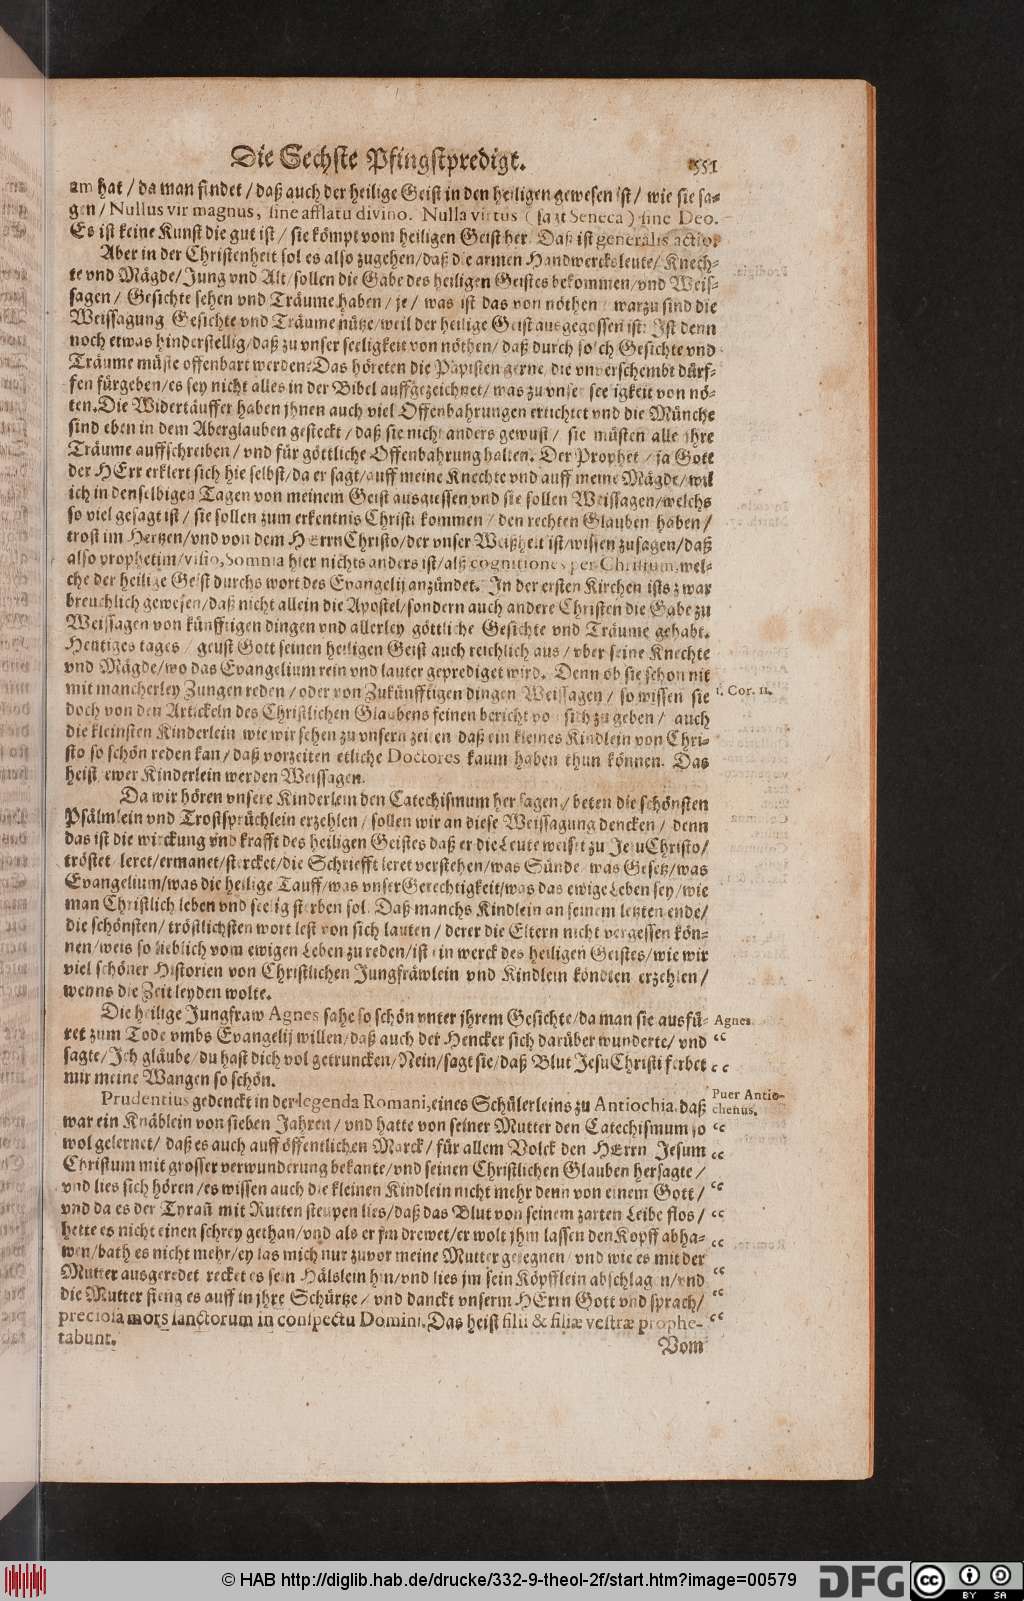 Die Sechste Pfingstpredigt. 551
am hat / da man findet / daß auch der heilige Geist in den heiligen gewesen ist / wie sie sa-
gen / Nullus vir magnus, sine afflatu divino. Nulla virtus ( sagt Seneca ) sine Deo.
Es ist keine Kunst die gut ist / sie kömpt vom heiligen Geist her. Daß ist generalis actio.
Aber in der Christenheit sol es also zugehen/daß die armen Handwercksleute/ Knech-
te vnd Mägde/ Jung vnd Alt/sollen die Gabe des heiligen Geistes bekommen/vnd Weis-
sagen / Gesichte sehen vnd Träume haben / je / was ist das von nöthen / warzu sind die
Weissagung Gesichte vnd Träume nütze/weil der heilige Geist ausgegossen ist: Ist denn
noch etwas hinderstellig/daß zu vnser seeligkeit von nöthen/ daß durch solch Gesichte vnd
Träume müste offenbart werden: Das höreten die Papisten gerne, die vnverschembt dürf-
fen fürgeben/es sey nicht alles in der Bibel auffgezeichnet/ was zu vnser seeligkeit von nö-
ten. Die Widertäuffer haben jhnen auch viel Offenbahrungen ertichtet vnd die Münche
sind eben in dem Aberglauben gesteckt / daß sie nicht anders gewust / sie müsten alle jhre
Träume auffschreiben / vnd für göttliche Offenbahrung halten. Der Prophet / ja Gott
der HErr erklert sich hie selbst/da er sagt/auff meine Knechte vnd auff meine Mägde/wil
ich in denselbigen Tagen von meinem Geist ausgiessen vnd sie sollen Weissagen/welchs
so viel gesagt ist / sie sollen zum erkentnis Christi kommen / den rechten Glauben haben /
trost im Hertzen/vnd von dem HErrn Christo/der vnser Weißheit ist/wissen zusagen/daß
also prophetim/visio, Somnia hier nichts anders ist/alß cognitiones per Christum, wel-
che der heilige Geist durchs wort des Evangelij anzündet. In der ersten Kirchen ists zwar
breuchlich gewesen/daß nicht allein die Apostel/sondern auch andere Christen die Gabe zu
Weissagen von künfftigen dingen vnd allerley göttliche Gesichte vnd Träume gehabt.
Heutiges tages / geust Gott seinen heiligen Geist auch reichlich aus / vber seine Knechte
vnd Mägde/wo das Evangelium rein vnd lauter geprediget wird. Denn ob sie schon nit
mit mancherley Zungen reden / oder von Zukünfftigen dingen Weissagen / so wissen sie
1. Cor. 11.
doch von den Artickeln des Christlichen Glaubens feinen bericht von sich zu geben / auch
die kleinsten Kinderlein wie wir sehen zu vnsern zeiten daß ein kleines Kindlein von Chri-
sto so schön reden kan / daß vorzeiten etliche Doctores kaum haben thun können. Das
heist ewer Kinderlein werden Weissagen.
Da wir hören vnsere Kinderlein den Catechismum her sagen / beten die schönsten
Psälmlein vnd Trostsprüchlein erzehlen / sollen wir an diese Weissagung dencken / denn
das ist die wirckung vnd krafft des heiligen Geistes daß er die Leute weiset zu Jesu Christo/
tröstet leret/ermanet/stercket/die Schriefft leret verstehen/was Sünde / was Gesetz/was
Evangelium/was die heilige Tauff/was vnser Gerechtigkeit/was das ewige Leben sey/wie
man Christlich leben vnd seelig sterben sol. Daß manchs Kindlein an seinem letzten ende/
die schönsten/ tröstlichsten wort lest von sich lauten / derer die Eltern nicht vergessen kön-
nen/weis so lieblich vom ewigen Leben zu reden/ist ein werck des heiligen Geistes/wie wir
viel schöner Historien von Christlichen Jungfräwlein vnd Kindlein köndten erzehlen /
wenns die Zeit leyden wolte.
Die heilige Jungfraw Agnes sahe so schön vnter jhrem Gesichte/da man sie ausfü-
Agnes.
ret zum Tode vmbs Evangelij willen/daß auch der Hencker sich darüber wunderte/ vnd “
sagte/Ich gläube/du hast dich vol getruncken/Nein/sagt sie/daß Blut Jesu Christi ferbet “
mir meine Wangen so schön.
Puer Antio-
chenus.
Prudentius gedenckt in der legenda Romani, eines Schülerleins zu Antiochia, daß
war ein Knäblein von sieben Jahren / vnd hatte von seiner Mutter den Catechismum so “
wol gelernet/ daß es auch auff öffentlichen Marck / für allem Volck den HErrn Jesum “
Christum mit grosser verwunderung bekante/vnd seinen Christlichen Glauben hersagte /
vnd lies sich hören /es wissen auch die kleinen Kindlein nicht mehr denn von einem Gott / “
vnd da es der Tyrañ mit Rutten steupen lies/daß das Blut von seinem zarten Leibe flos / “
hette es nicht einen schrey gethan/vnd als er jm drewet/er wolt jhm lassen den Kopff abha- “
wen/bath es nicht mehr/ey las mich nur zuvor meine Mutter gesegnen / vnd wie es mit der
Mutter ausgeredet recket es sein Hälslein hin/vnd lies jm sein Köpfflein abschlagen/vnd “
die Mutter fieng es auff in jhre Schürtze / vnd danckt vnserm HErrn Gott vnd sprach/ “
preciosa mors sanctorum in conspectu Domini. Das heist filii & filiæ vestræ prophe- “
tabunt.
Vom
© HAB http://diglib.hab.de/drucke/332-9-theol-2f/start.htm?image=00579
DFG
cc BY SA